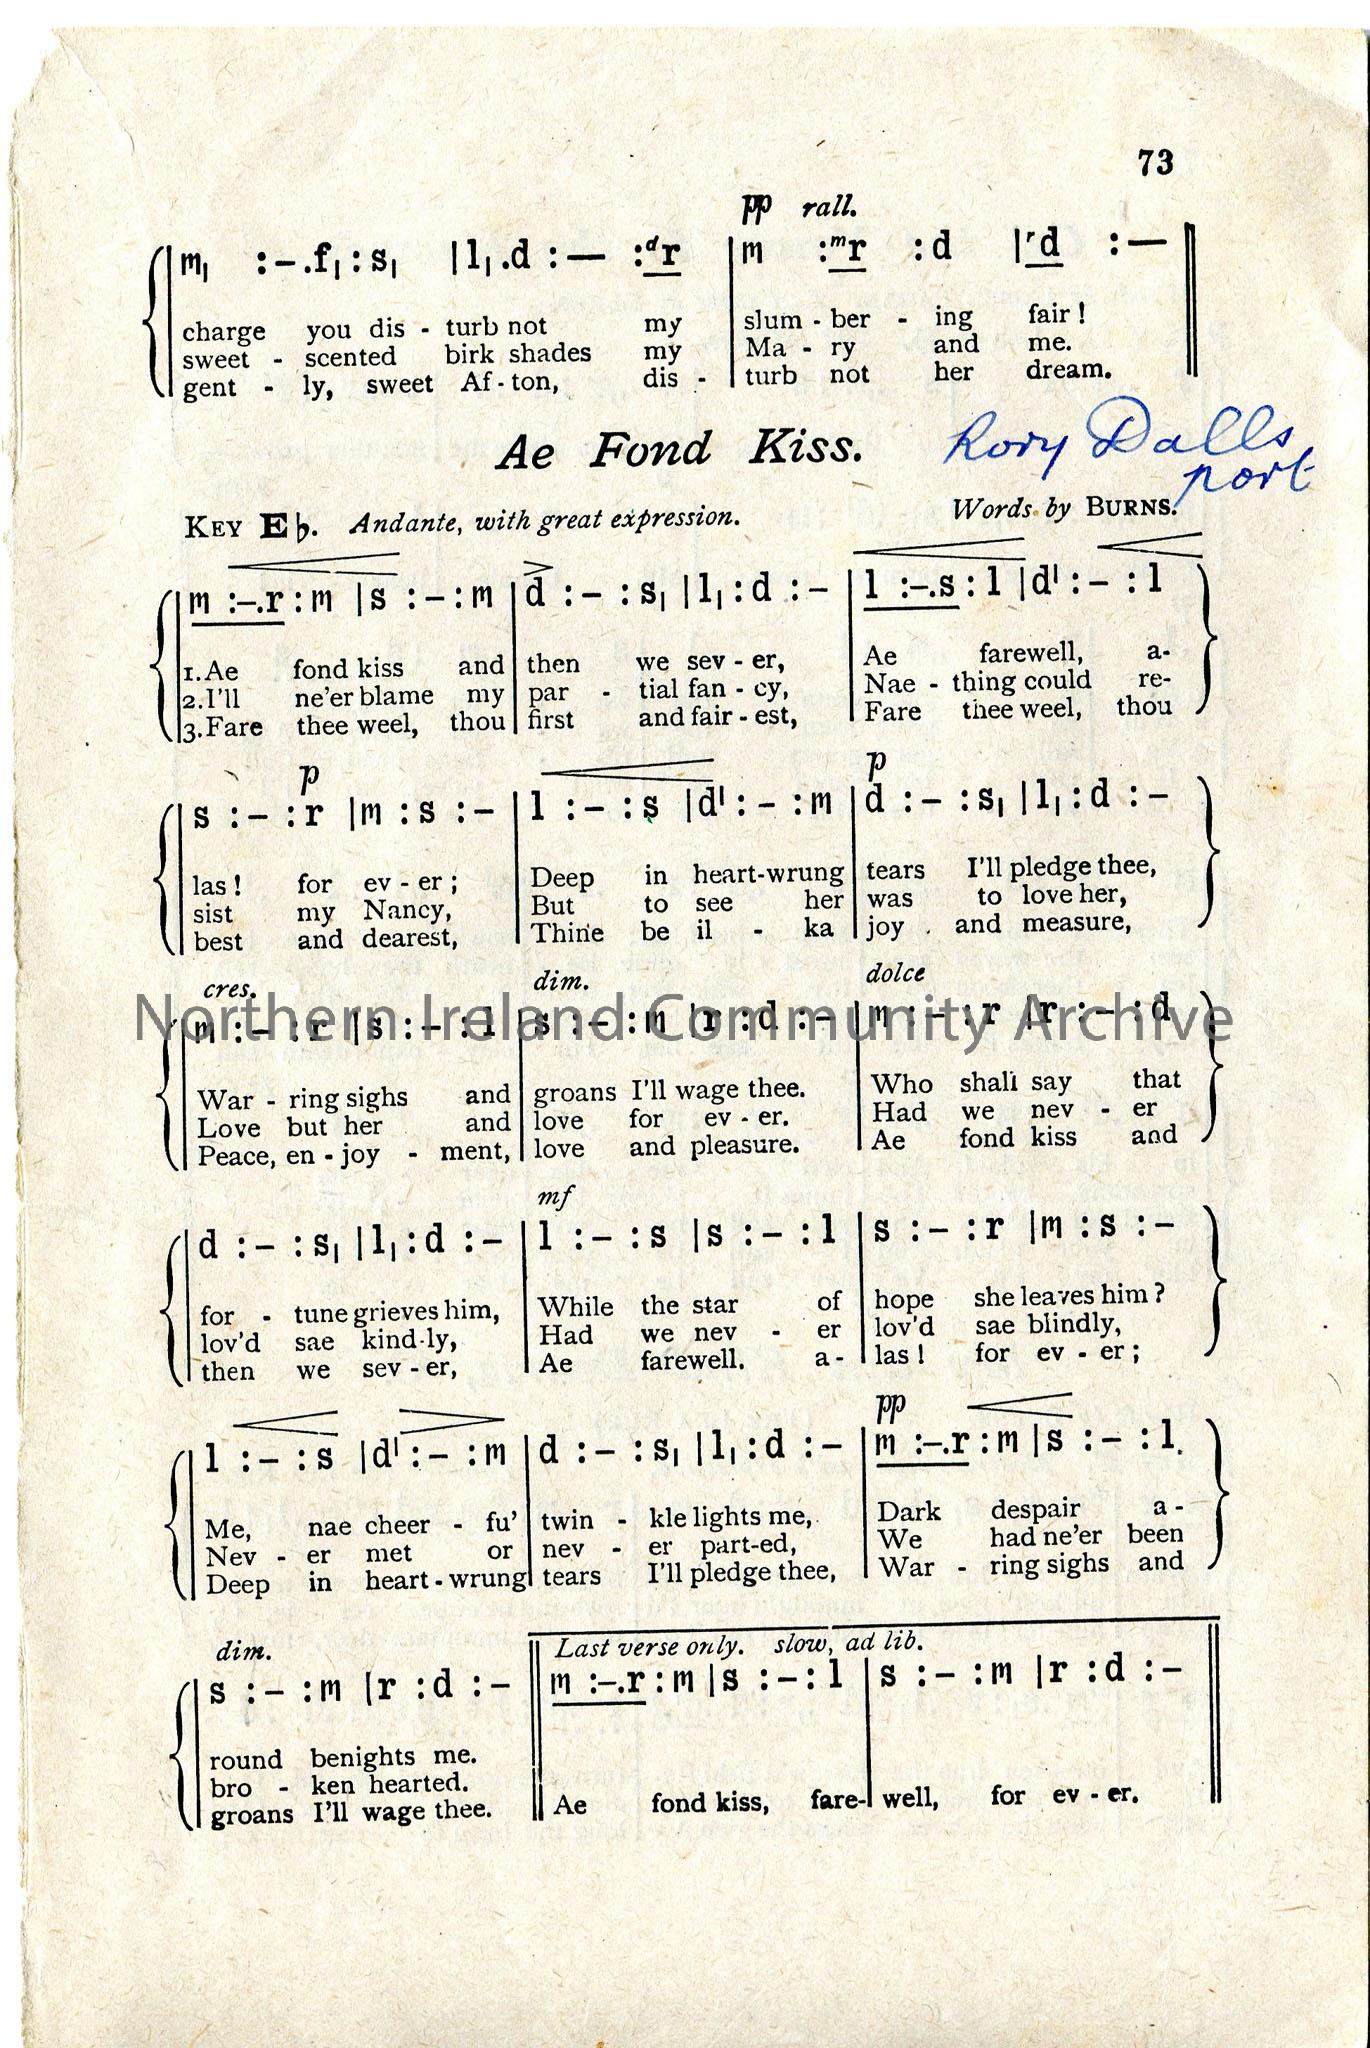 73
pp rall.
m, :-.f, :s, |l, .d :— :ᵈr |m :ᵐr :d |ʳd :—
charge you dis - turb not my slum - ber - ing fair!
sweet - scented birk shades my Ma - ry and me.
gent - ly, sweet Af - ton, dis - turb not her dream.
Ae Fond Kiss. Rory Dalls
port
KEY E♭. Andante, with great expression. Words by BURNS.
m :-.r :m |s :- :m |d :- :s, |l, :d :- |l :-.s :l |d' :- :l
1. Ae fond kiss and then we sev - er, Ae farewell, a-
2. I'll ne'er blame my par - tial fan - cy, Nae - thing could re-
3. Fare thee weel, thou first and fair - est, Fare thee weel, thou
p p
s :- :r |m :s :- |l :- :s |d' :- :m |d :- :s, |l, :d :-
las! for ev - er; Deep in heart-wrung tears I'll pledge thee,
sist my Nancy, But to see her was to love her,
best and dearest, Thine be il - ka joy and measure,
cres. dim. dolce
m :- :r |s :- :l |s :- :m |r :d :- |m :- :r |r :- :d
Northern Ireland Community Archive
War - ring sighs and groans I'll wage thee. Who shall say that
Love but her and love for ev - er. Had we nev - er
Peace, en - joy - ment, love and pleasure. Ae fond kiss and
mf
d :- :s, |l, :d :- |l :- :s |s :- :l |s :- :r |m :s :-
for - tune grieves him, While the star of hope she leaves him?
lov'd sae kind-ly, Had we nev - er lov'd sae blindly,
then we sev - er, Ae farewell. a - las! for ev - er;
pp
l :- :s |d' :- :m |d :- :s, |l, :d :- |m :-.r :m |s :- :l
Me, nae cheer - fu' twin - kle lights me, Dark despair a -
Nev - er met or nev - er part-ed, We had ne'er been
Deep in heart - wrung tears I'll pledge thee, War - ring sighs and
dim. Last verse only. slow, ad lib.
s :- :m |r :d :- ||m :-.r :m |s :- :l |s :- :m |r :d :-
round benights me.
bro - ken hearted.
groans I'll wage thee. Ae fond kiss, fare- well, for ev - er.